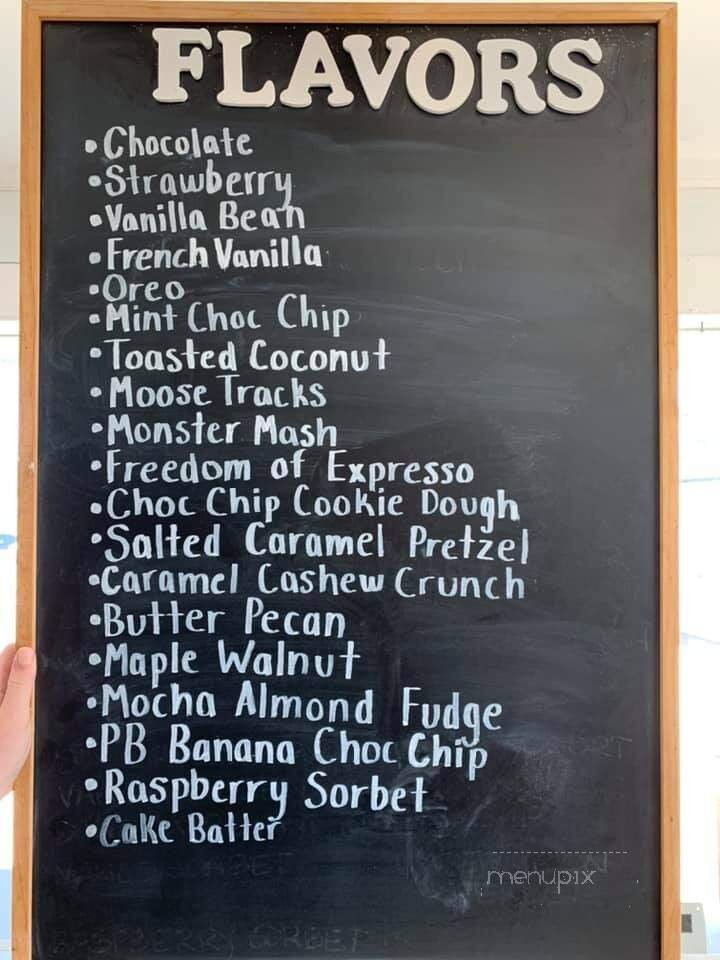 FLAVORS
•Chocolate
•Strawberry
•Vanilla Bean
•French Vanilla
•Oreo
•Mint Choc Chip
•Toasted Coconut
•Moose Tracks
•Monster Mash
•Freedom of Expresso
•Choc Chip Cookie Dough
•Salted Caramel Pretzel
•Caramel Cashew Crunch
•Butter Pecan
•Maple Walnut
•Mocha Almond Fudge
•PB Banana Choc Chip
•Raspberry Sorbet
•Cake Batter
menupix
RASPBERRY SORBET